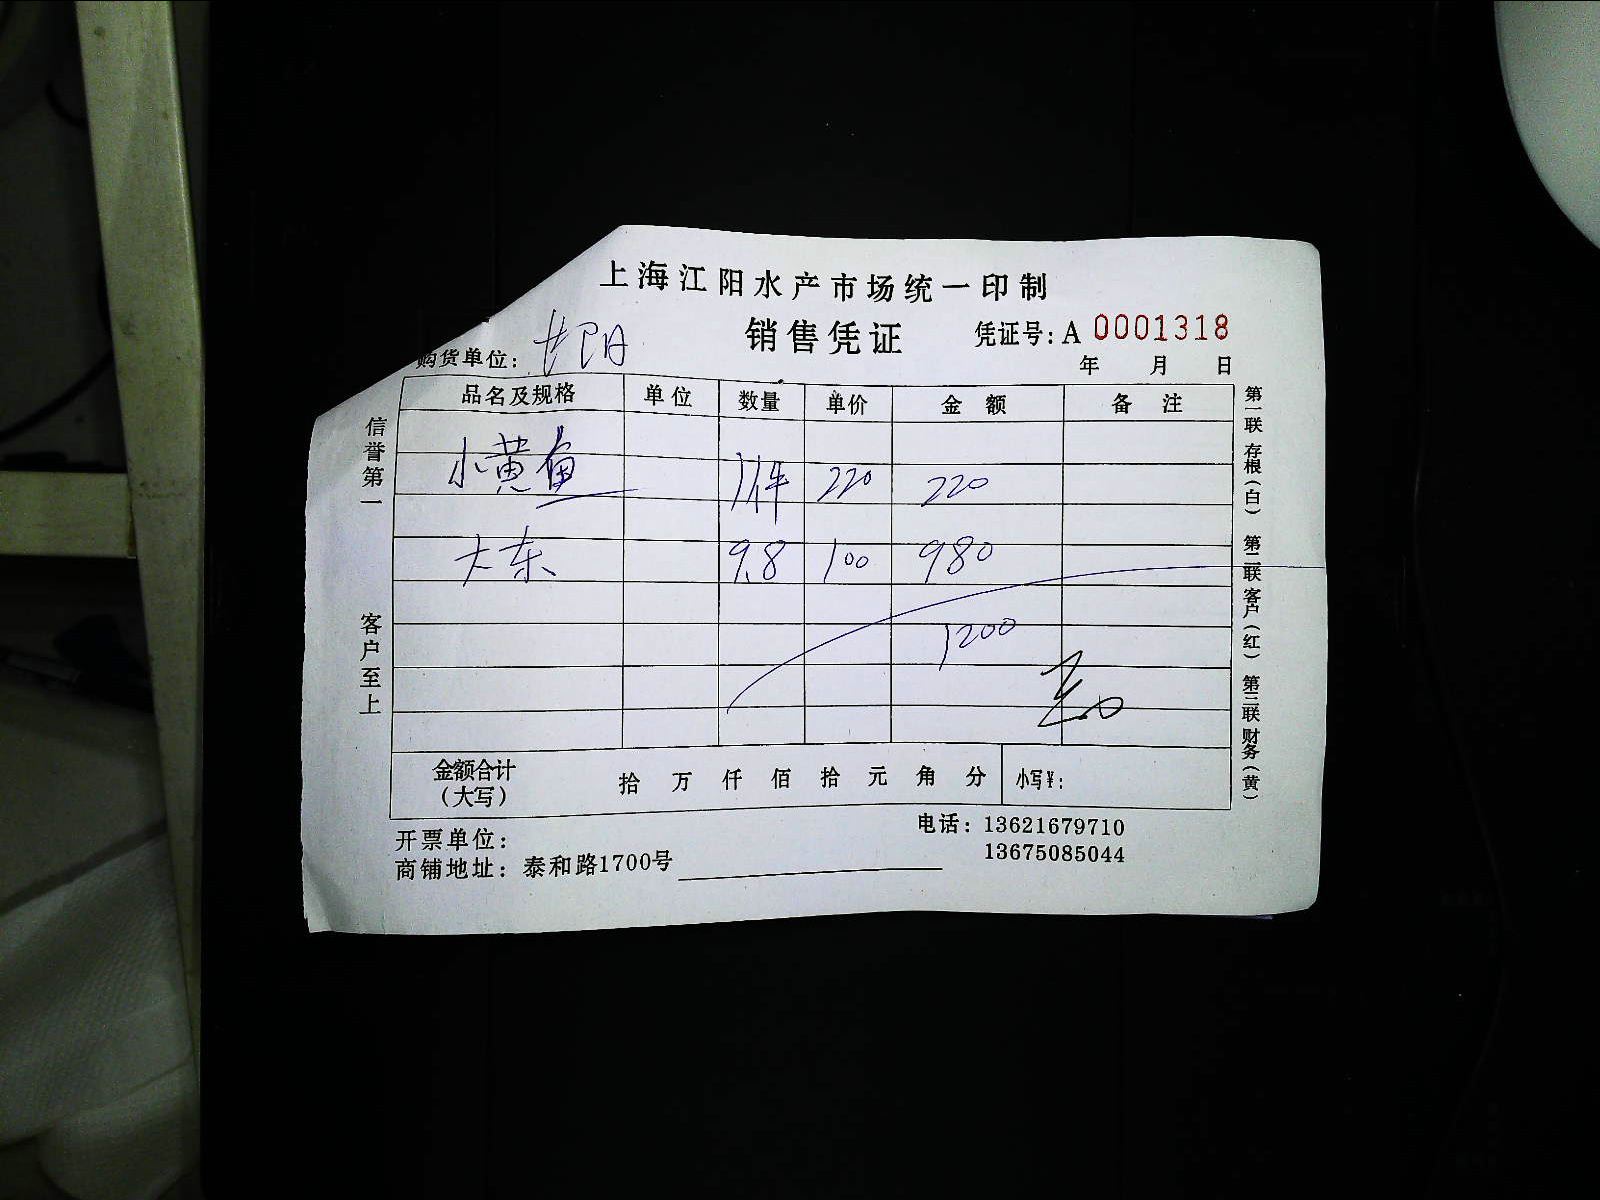 上海江阳水产市场统一印制
销售凭证
凭证号: A 0001318
购货单位:
年 月 日
品名及规格 单位 数量 单价 金额 备注
小黄鱼 1件 220 220
大东 9.8 100 980
1200
金额合计 (大写) 拾 万 仟 佰 拾 元 角 分 小写¥:
开票单位:
电话: 13621679710
13675085044
商铺地址: 泰和路1700号
信誉第一 客户至上
第一联 存根(白) 第二联 客户(红) 第三联 财务(黄)